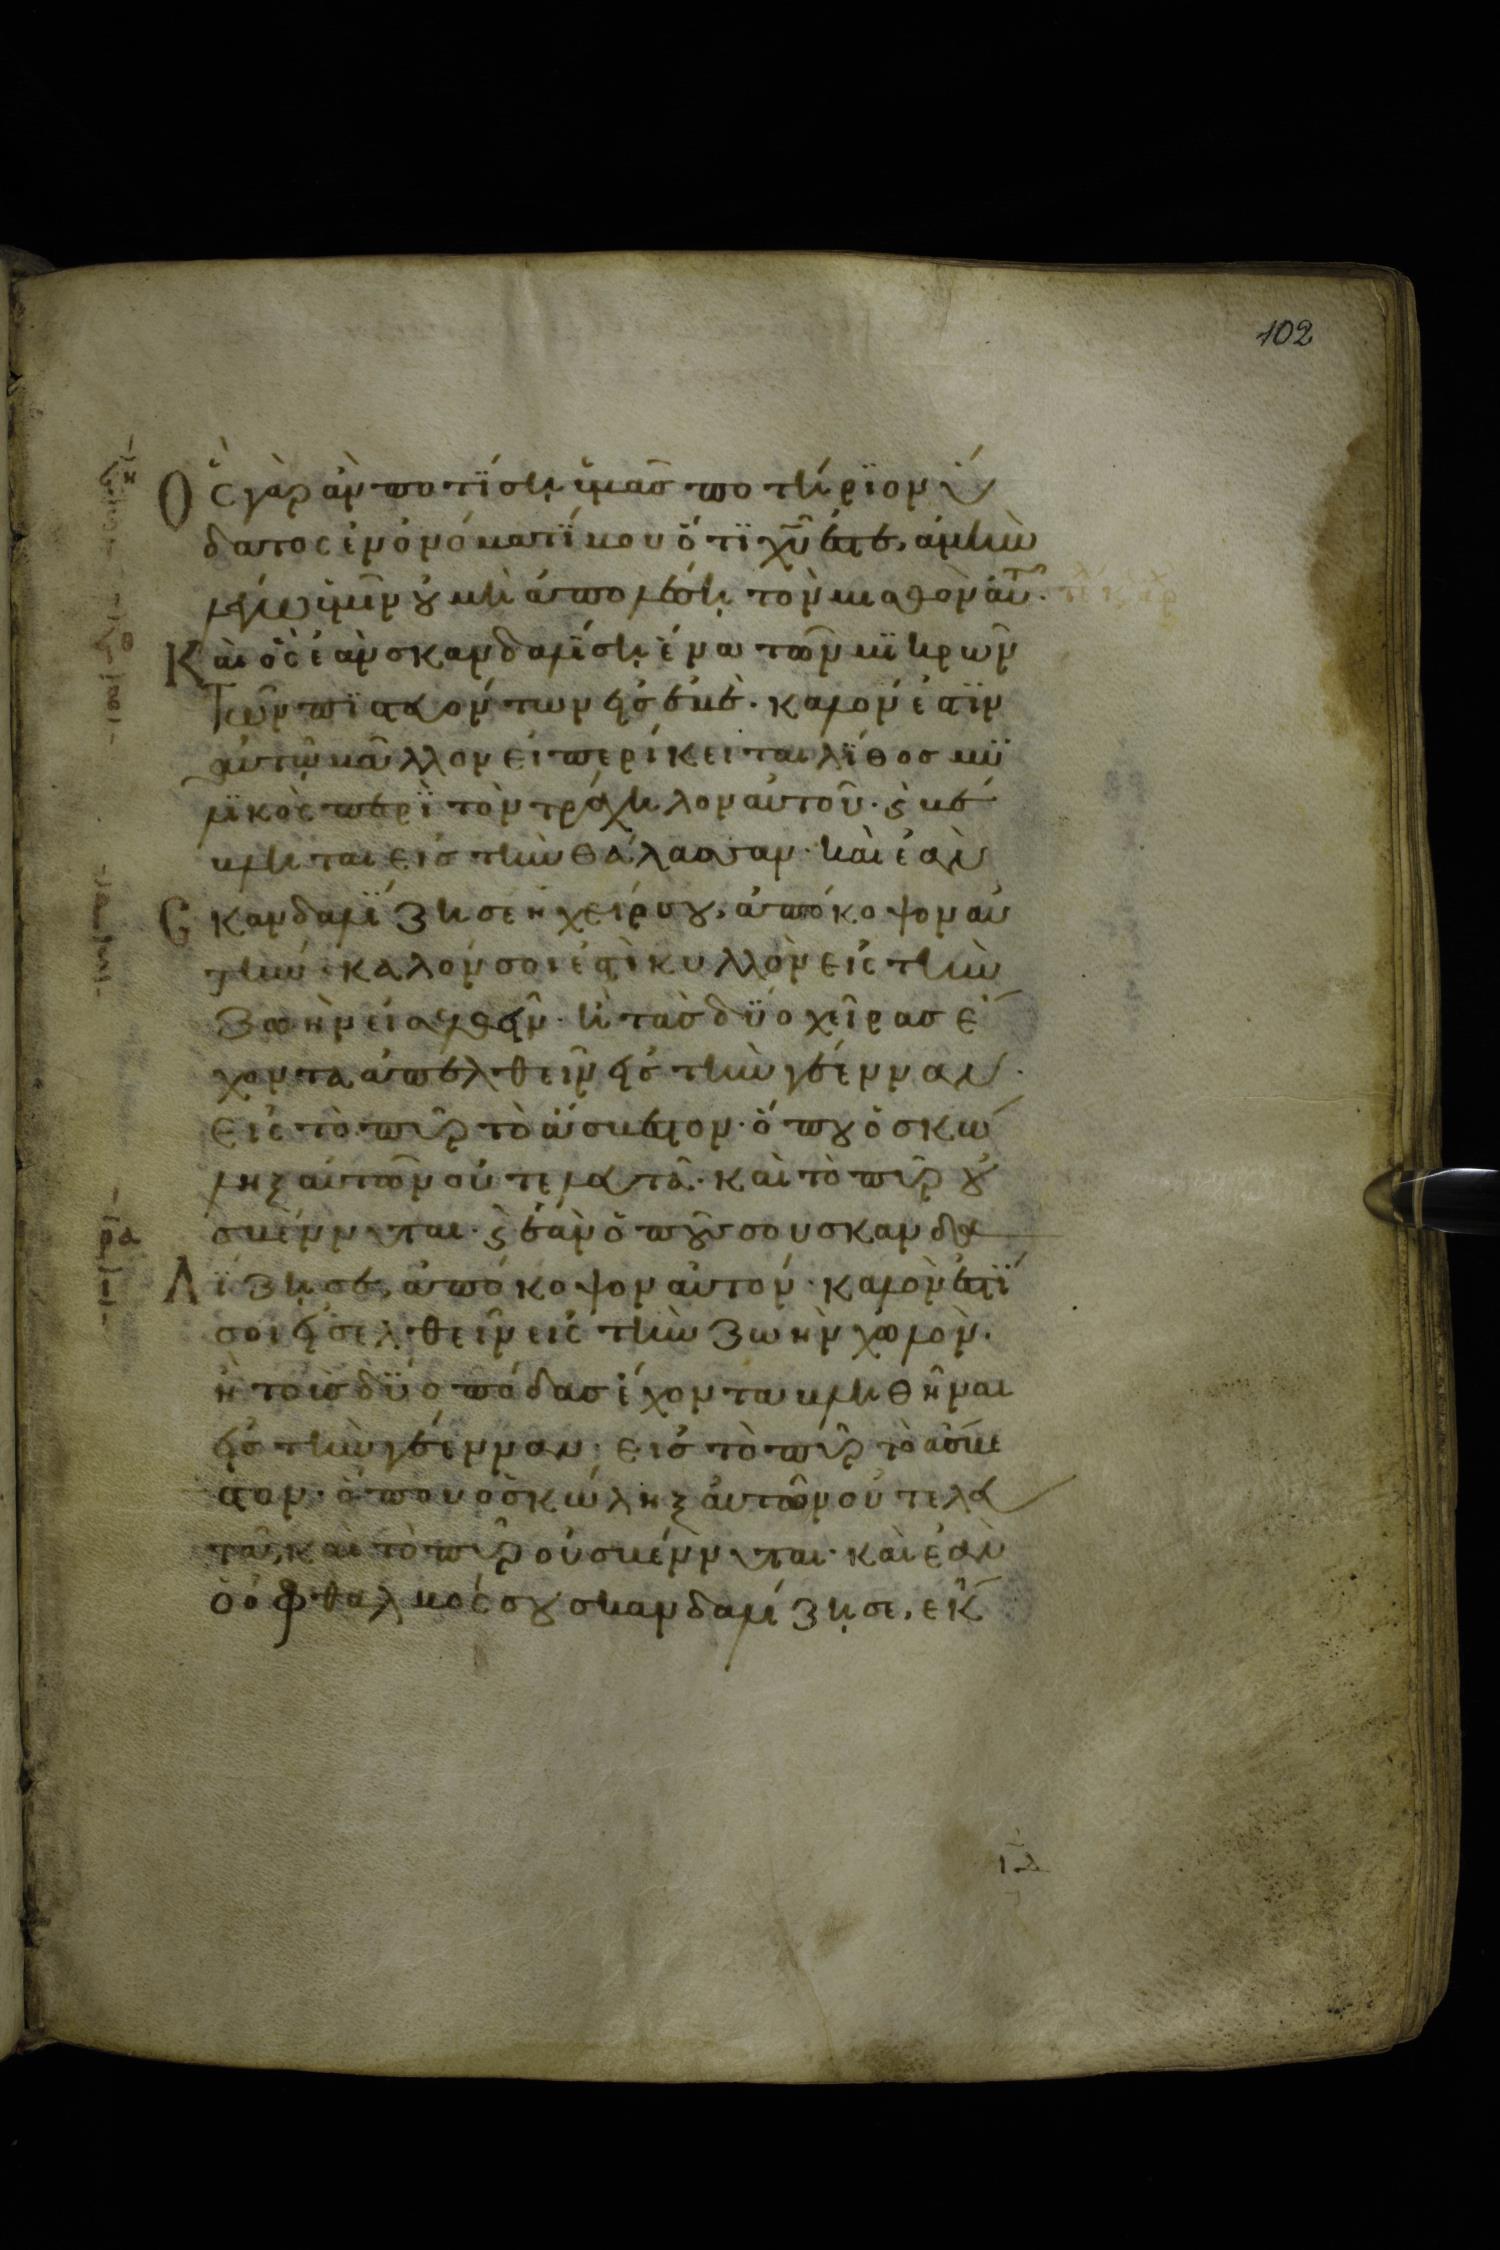 102
Ὃς γὰρ ἂν ποτΐσῃ ὑμᾶς ποτήρϊον ὕ
δατος ἐν ὀνόματΐ μου ὅτϊ χῦ ἐστε, ἀμὴν
λέγω ὑμῖν οὐ μὴ ἀπολέσῃ τὸν μισθὸν αὐτ.
Καὶ ὃς ἐὰν σκανδαλΐσῃ ἕνα τῶν μϊκρῶν
τῶν πϊστευόντων εἰς ἐμὲ· καλόν ἐστϊν
αὐτῷ μᾶλλον εἰ περίκειται λΐθος μυ
λϊκὸς περῒ τὸν τράχηλον αὐτοῦ· ϗ βέ
βληται εἰς τὴν θάλασσαν· καὶ ἐὰν
Σκανδαλίζη σε ἡ χείρ σου, ἀπόκοψον αὐ
τήν· καλόν σοι ἐστὶ κυλλὸν εἰς τὴν
ζωὴν εἰσελθεῖν· ἢ τὰς δΰο χεῖρας ἔ
χοντα ἀπελθεῖν εἰς τὴν γέενναν·
εἰς τὸ πῦρ τὸ ἄσβεστον· ὅπου ὁ σκώ
ληξ αὐτῶν οὐ τελευτᾶ· καὶ τὸ πῦρ οὐ
σβέννυται· ϗ ἐὰν ὁ ποῦς σου σκανδα
Λΐζῃ σε, ἀπόκοψον αὐτόν· καλὸν ἐστΐ
σοι εἰσελθεῖν εἰς τὴν ζωὴν χωλὸν·
ἢ τοὺς δΰο πόδας ἔχοντα βληθῆναι
εἰς τὴν γέενναν· εἰς τὸ πῦρ τὸ ἄσβε
στον· ὅπου ὁ σκώληξ αὐτῶν οὐ τελευ
τᾶ, καὶ τὸ πῦρ οὐ σβέννυται· καὶ ἐὰν
ὁ ὀφθαλμός σου σκανδαλίζῃ σε, ἔκ